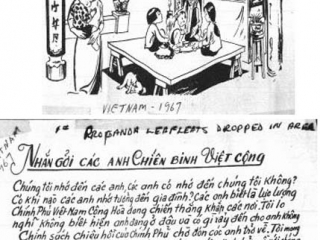 VIETNAM - 1967
PROPAGANDA LEAFLETS DROPPED IN AREA
NHẮN GỞI CÁC ANH CHIẾN BINH VIỆT CỘNG
Chúng tôi nhớ đến các anh, các anh có nhớ đến chúng tôi không?
Có khi nào các anh nhớ tưởng đến gia đình? Các anh biết là lực lượng
Chính Phủ Việt Nam Cộng Hòa đang chiến thắng khắp các nơi. Tôi lo
nghỉ không biết hiện anh đang ở đâu và có gì xảy đến cho anh không
Chính sách chiêu hồi của Chính Phủ chờ đón các anh trở về. Tôi mong